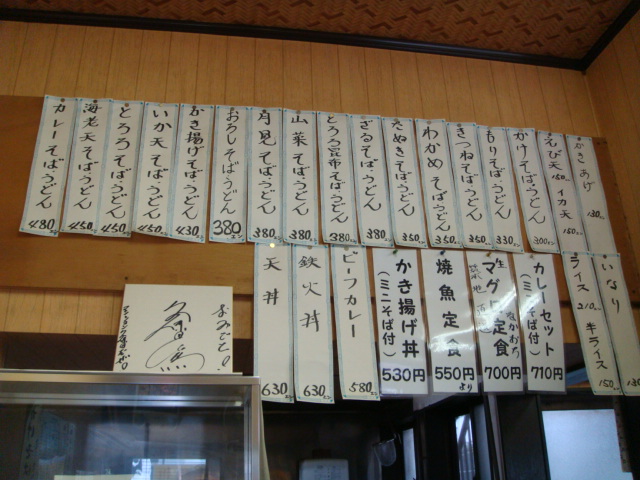 かきあげ 130
えび天 150 イカ天 150
かけそばうどん 300
もりそば・うどん 330
きつねそば・うどん 350
わかめそば・うどん 350
たぬきそば・うどん 350
ざるそば・うどん 380
とろろ昆布そばうどん 380
山菜そばうどん 380
月見そばうどん 380
おろしそばうどん 380
かき揚げそばうどん 430
いか天そばうどん 450
とろろそばうどん 450
海老天そばうどん 450
カレーそばうどん 480
いなり 130
ライス 210 半ライス 150
カレーセット（ミニそば付） 710円
生マグロ定食 700円
焼魚定食 550円より
かき揚げ丼（ミニそば付） 530円
ビーフカレー 580
鉄火丼 630
天丼 630